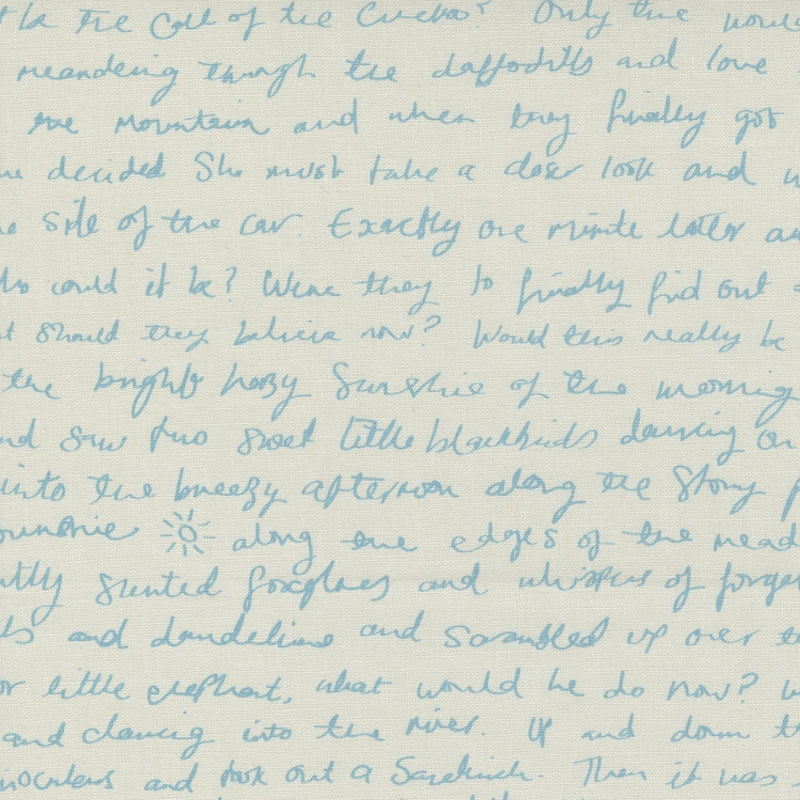 the call of the Cuckoo? Only time would
meandering through the daffodills and love
the Mountain and when they finally got
decided She must take a closer look and
side of the car. Exactly one minute later
who could it be? Were they to finally find out
should they believe now? Would this really be
the bright hazy Sunshine of the morning
and saw two sweet little blackbirds dancing on
into the breezy afternoon along the Stony
sunshine along the edges of the
scented foxgloves and whispers of
and dandelions and scrambled up over
little elephant, what would he do now?
and dancing into the river. Up and down
binoculars and took out a Sandwich. Then it was